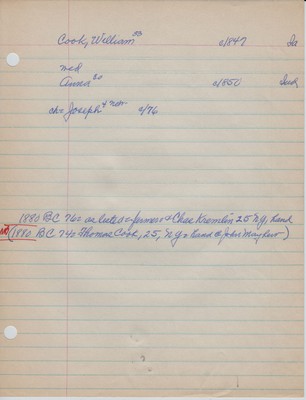 Cook, William 33 c/1847 Ia
med
Anna 30 c/1850 Ind
ch= Joseph 4 Nebr c/76
1880 BC 76= as listed = farmer + Chas Kremlin 25 NY, hand
(1880 BC 74= Thomas Cook, 25, NY = hand @ John Mayhew)